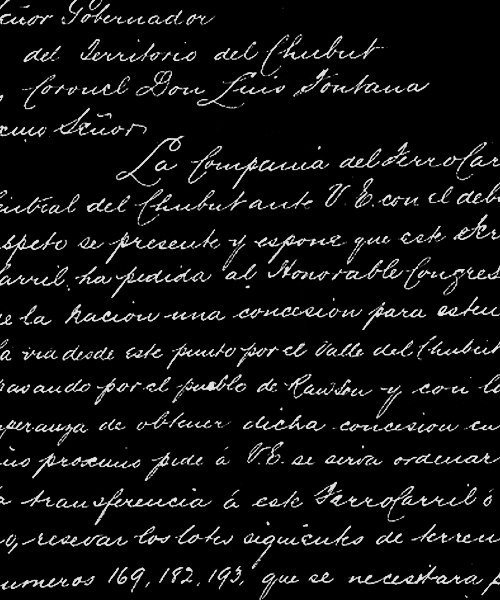 eñor Gobernador
del Territorio del Chubut
Coronel Don Luis Fontana
cmo Señor
La Compania del FerroCar
entral del Chubut ante V.E. con el deb
speto se presente y espone que este Ferr
Carril, ha pedida al Honorable Congres
e la Nacion una concesion para esten
la via desde este punto por el Valle del Chubut
pasando por el pueblo de Rawson y con la
peranza de obtener dicha concesion en
ño procsimo pide á V.E. se sirva ordenar
a transferencia á este FerroCarril ó
o, resevar los lotes siguientes de terren
umeros 169, 182, 193, que se necesitara p